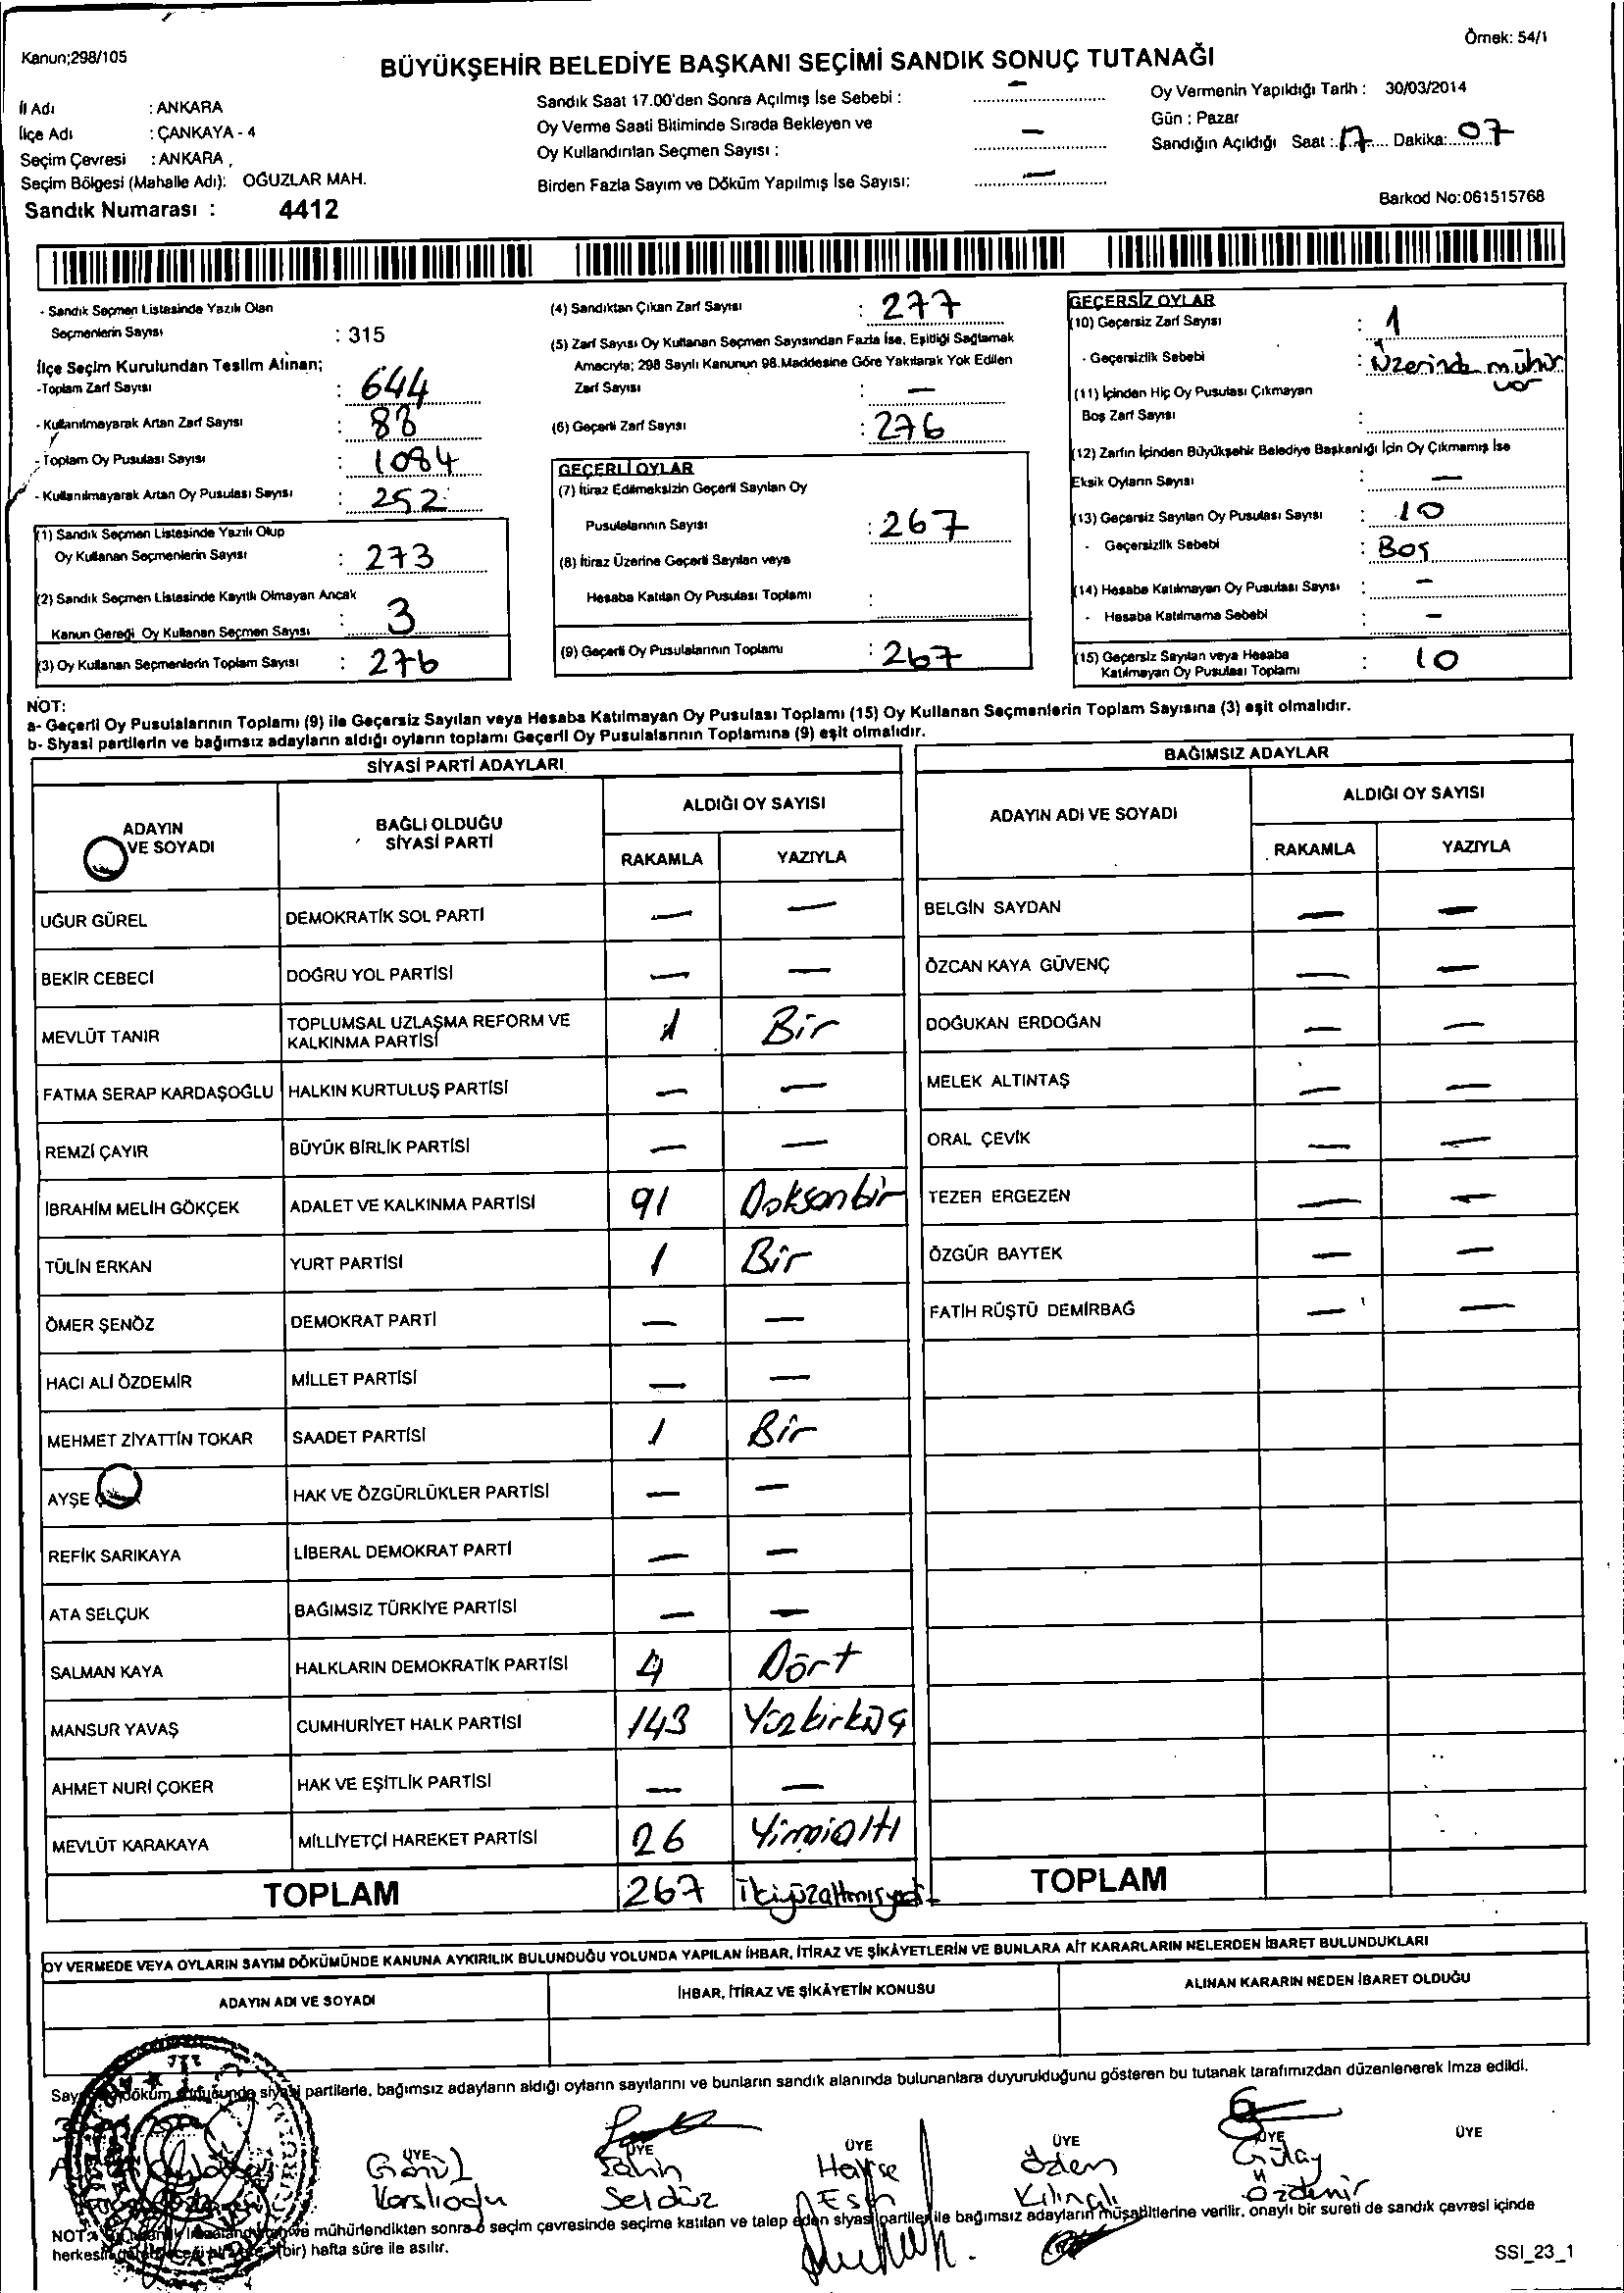 Kanun;298/105
Örnek: 54/1
BÜYÜKŞEHİR BELEDİYE BAŞKANI SEÇİMİ SANDIK SONUÇ TUTANAĞI
İl Adı : ANKARA
İlçe Adı : ÇANKAYA - 4
Seçim Çevresi : ANKARA ,
Seçim Bölgesi (Mahalle Adı): OĞUZLAR MAH.
Sandık Numarası : 4412
Sandık Saat 17.00'den Sonra Açılmış İse Sebebi : —
Oy Verme Saati Bitiminde Sırada Bekleyen ve
Oy Kullandırılan Seçmen Sayısı : —
Birden Fazla Sayım ve Döküm Yapılmış İse Sayısı: —
Oy Vermenin Yapıldığı Tarih : 30/03/2014
Gün : Pazar
Sandığın Açıldığı Saat : 17 Dakika: 07
Barkod No:061515768
- Sandık Seçmen Listesinde Yazılı Olan
Seçmenlerin Sayısı : 315
İlçe Seçim Kurulundan Teslim Alınan;
-Toplam Zarf Sayısı : 644
- Kullanılmayarak Artan Zarf Sayısı : 88
- Toplam Oy Pusulası Sayısı : 1084
- Kullanılmayarak Artan Oy Pusulası Sayısı : 252
(1) Sandık Seçmen Listesinde Yazılı Olup
Oy Kullanan Seçmenlerin Sayısı : 273
(2) Sandık Seçmen Listesinde Kayıtlı Olmayan Ancak
Kanun Gereği Oy Kullanan Seçmen Sayısı : 3
(3) Oy Kullanan Seçmenlerin Toplam Sayısı : 276
(4) Sandıktan Çıkan Zarf Sayısı : 277
(5) Zarf Sayısı Oy Kullanan Seçmen Sayısından Fazla İse, Eşitliği Sağlamak
Amacıyla; 298 Sayılı Kanunun 98.Maddesine Göre Yakılarak Yok Edilen
Zarf Sayısı : —
(6) Geçerli Zarf Sayısı : 276
GEÇERLİ OYLAR
(7) İtiraz Edilmeksizin Geçerli Sayılan Oy
Pusulalarının Sayısı : 267
(8) İtiraz Üzerine Geçerli Sayılan veya
Hesaba Katılan Oy Pusulası Toplamı :
(9) Geçerli Oy Pusulalarının Toplamı : 267
GEÇERSİZ OYLAR
(10) Geçersiz Zarf Sayısı : 1
- Geçersizlik Sebebi : Üzerinde mühür
var
(11) İçinden Hiç Oy Pusulası Çıkmayan
Boş Zarf Sayısı :
(12) Zarfın İçinden Büyükşehir Belediye Başkanlığı İçin Oy Çıkmamış İse
Eksik Oyların Sayısı : —
(13) Geçersiz Sayılan Oy Pusulası Sayısı : 10
- Geçersizlik Sebebi : Boş
(14) Hesaba Katılmayan Oy Pusulası Sayısı : —
- Hesaba Katılmama Sebebi : —
(15) Geçersiz Sayılan veya Hesaba
Katılmayan Oy Pusulası Toplamı : 10
NOT:
a- Geçerli Oy Pusulalarının Toplamı (9) ile Geçersiz Sayılan veya Hesaba Katılmayan Oy Pusulası Toplamı (15) Oy Kullanan Seçmenlerin Toplam Sayısına (3) eşit olmalıdır.
b- Siyasi partilerin ve bağımsız adayların aldığı oyların toplamı Geçerli Oy Pusulalarının Toplamına (9) eşit olmalıdır.
SİYASİ PARTİ ADAYLARI
ADAYIN
VE SOYADI
BAĞLI OLDUĞU
SİYASİ PARTİ
ALDIĞI OY SAYISI
RAKAMLA YAZIYLA
UĞUR GÜREL DEMOKRATİK SOL PARTİ — —
BEKİR CEBECİ DOĞRU YOL PARTİSİ — —
MEVLÜT TANIR TOPLUMSAL UZLAŞMA REFORM VE
KALKINMA PARTİSİ 1 Bir
FATMA SERAP KARDAŞOĞLU HALKIN KURTULUŞ PARTİSİ — —
REMZİ ÇAYIR BÜYÜK BİRLİK PARTİSİ — —
İBRAHİM MELİH GÖKÇEK ADALET VE KALKINMA PARTİSİ 91 Doksanbir
TÜLİN ERKAN YURT PARTİSİ 1 Bir
ÖMER ŞENÖZ DEMOKRAT PARTİ — —
HACI ALİ ÖZDEMİR MİLLET PARTİSİ — —
MEHMET ZİYATTİN TOKAR SAADET PARTİSİ 1 Bir
AYŞE HAK VE ÖZGÜRLÜKLER PARTİSİ — —
REFİK SARIKAYA LİBERAL DEMOKRAT PARTİ — —
ATA SELÇUK BAĞIMSIZ TÜRKİYE PARTİSİ — —
SALMAN KAYA HALKLARIN DEMOKRATİK PARTİSİ 4 Dört
MANSUR YAVAŞ CUMHURİYET HALK PARTİSİ 143 Yüzkirküç
AHMET NURİ ÇOKER HAK VE EŞİTLİK PARTİSİ — —
MEVLÜT KARAKAYA MİLLİYETÇİ HAREKET PARTİSİ 26 Yirmialtı
TOPLAM 267 İkiyüzaltmışyedi
BAĞIMSIZ ADAYLAR
ADAYIN ADI VE SOYADI
ALDIĞI OY SAYISI
RAKAMLA YAZIYLA
BELGİN SAYDAN — —
ÖZCAN KAYA GÜVENÇ — —
DOĞUKAN ERDOĞAN — —
MELEK ALTINTAŞ — —
ORAL ÇEVİK — —
TEZER ERGEZEN — —
ÖZGÜR BAYTEK — —
FATİH RÜŞTÜ DEMİRBAĞ — —
TOPLAM
OY VERMEDE VEYA OYLARIN SAYIM DÖKÜMÜNDE KANUNA AYKIRILIK BULUNDUĞU YOLUNDA YAPILAN İHBAR, İTİRAZ VE ŞİKÂYETLERİN VE BUNLARA AİT KARARLARIN NELERDEN İBARET BULUNDUKLARI
ADAYIN ADI VE SOYADI İHBAR, İTİRAZ VE ŞİKÂYETİN KONUSU ALINAN KARARIN NEDEN İBARET OLDUĞU
döküm siyasi partilerle, bağımsız adayların aldığı oyların sayılarını ve bunların sandık alanında bulunanlara duyurulduğunu gösteren bu tutanak tarafımızdan düzenlenerek imza edildi.
ÜYE ÜYE ÜYE ÜYE ÜYE ÜYE
Gönül Şahin Hayrse Özlem Gülay
Karslıoğlu Seldüz Esin Kılınçlı Özdemir
NOT: mühürlendikten sonra o seçim çevresinde seçime katılan ve talep eden siyasi partiler ile bağımsız adayların müşahitlerine verilir, onaylı bir sureti de sandık çevresi içinde
herkesin (bir) hafta süre ile asılır.
SSI_23_1